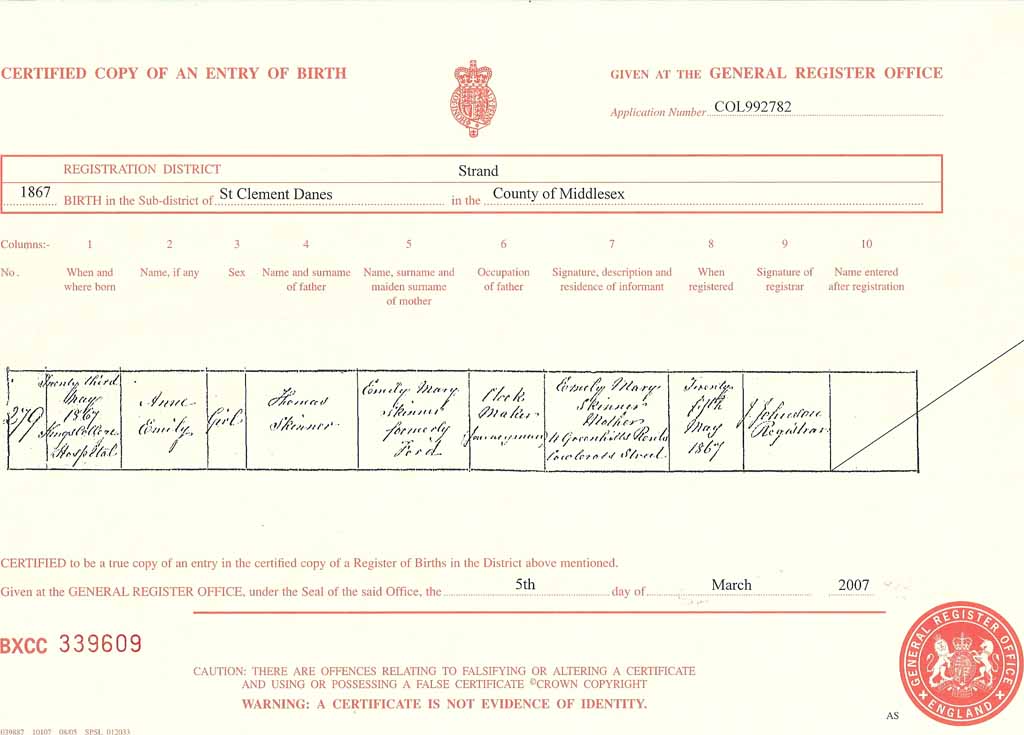 CERTIFIED COPY OF AN ENTRY OF BIRTH
GIVEN AT THE GENERAL REGISTER OFFICE
Application Number COL992782
REGISTRATION DISTRICT Strand
1867 BIRTH in the Sub-district of St Clement Danes in the County of Middlesex
Columns:- 1 2 3 4 5 6 7 8 9 10
No. When and where born Name, if any Sex Name and surname of father Name, surname and maiden surname of mother Occupation of father Signature, description and residence of informant When registered Signature of registrar Name entered after registration
279
Twenty third
May
1867
Kings College
Hospital
Anne
Emily
Girl
Thomas
Skinner
Emily Mary
Skinner
formerly
Ford
Clock
Maker
Journeyman
Emely Mary
Skinner
Mother
4 Greenhills Rents
Cowcross Street
Twenty
fifth
May
1867
J Johnstone
Registrar
CERTIFIED to be a true copy of an entry in the certified copy of a Register of Births in the District above mentioned.
Given at the GENERAL REGISTER OFFICE, under the Seal of the said Office, the 5th day of March 2007
BXCC 339609
CAUTION: THERE ARE OFFENCES RELATING TO FALSIFYING OR ALTERING A CERTIFICATE
AND USING OR POSSESSING A FALSE CERTIFICATE ©CROWN COPYRIGHT
WARNING: A CERTIFICATE IS NOT EVIDENCE OF IDENTITY.
GENERAL REGISTER OFFICE
ENGLAND
AS
039887 10107 08/05 SPSL 012033